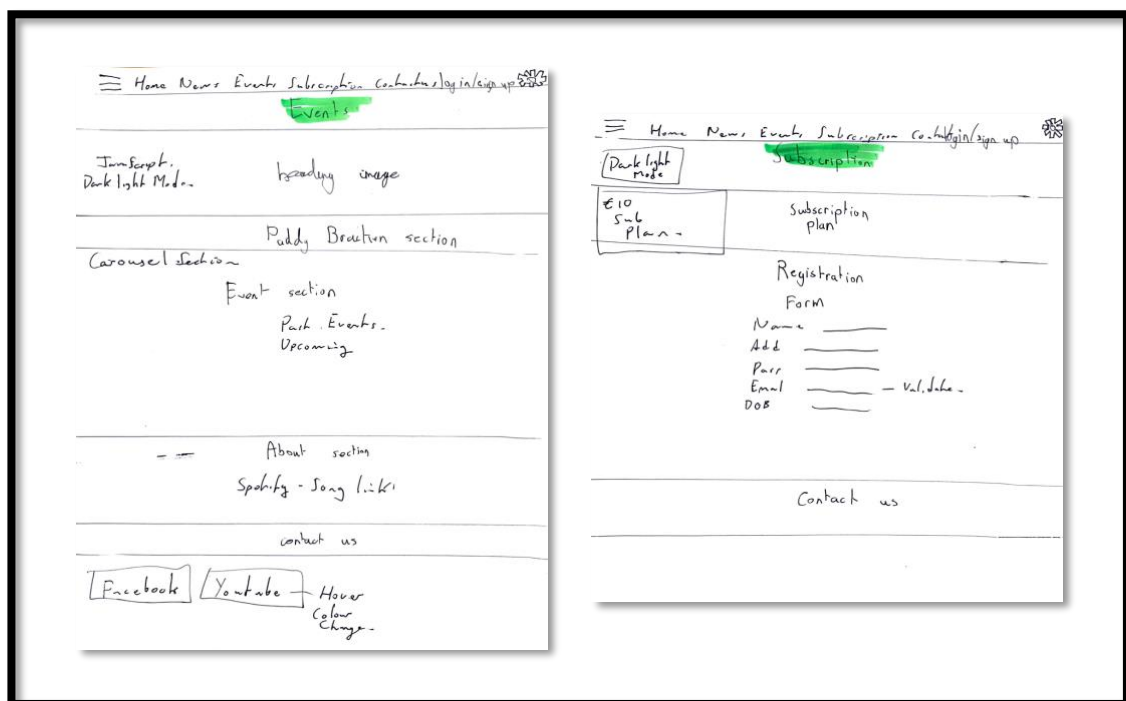 Home News Events Subscription Contactus login/sign up
Events
JavaScript.
Dark light Mode.
heading image
Paddy section
Carousel Section
Event section
Past Events.
Upcoming
About section
Spotify - Song links
contact us
Facebook Youtube - Hover
Colour
Change.
Home News Events Subscription Contact login/sign up
Subscription
Dark light
Mode
€10
Sub
Plan.
Subscription
Plan
Registration
Form
Name
Add
Pass
Email - Validate.
DoB
Contact us